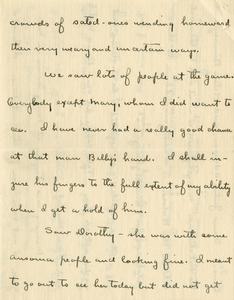 crowds of sated-ones wending homeward
their very weary and uncertain ways.
We saw lots of people at the game.
Everybody except Mary, whom I did want to
see. I have never had a really good chance
at that man Billy's hand. I shall in-
jure his fingers to the full extent of my ability
when I get a hold of him.
Saw Dorothy - she was with some
Ansonia people and looking fine. I meant
to go out to see her today but did not get